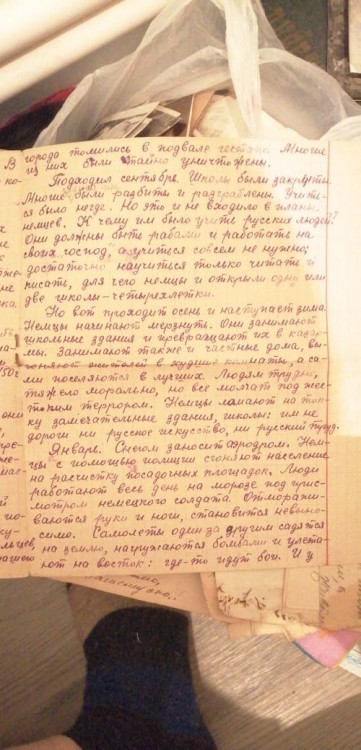 города томились в подвале гестапо. Многие
из них были тайно уничтожены.
Подходил сентябрь. Школы были закрыты.
Многие были разбиты и разграблены. Учить-
ся было негде. Но это и не входило в планы
немцев. К чему им было учить русских людей?
Они должны быть рабами и работать на
своих господ, а учиться совсем не нужно;
достаточно научиться только читать и
писать, для чего немцы и открыли одну или
две школы-четырехлетки.
Но вот проходит осень и наступает зима.
Немцы начинают мерзнуть. Они занимают
школьные здания и превращают их в казар-
мы. Занимают также и частные дома, вы-
гоняют жителей в худшие комнаты, а са-
ми поселяются в лучших. Людям трудно,
тяжело морально, но все молчат под жес-
токим террором. Немцы ломают на топ-
ку замечательные здания, школы: им не
дороги ни русское искусство, ни русский труд.
Январь. Снегом заносит аэродром. Нем-
цы с помощью полиции сгоняют население
на расчистку посадочных площадок. Люди
работают весь день на морозе под прис-
мотром немецкого солдата. Отморажи-
ваются руки и ноги, становится невыно-
симо. Самолеты один за другим садятся
на землю, нагружаются бомбами и улета-
ют на восток: где-то идут бои. И у